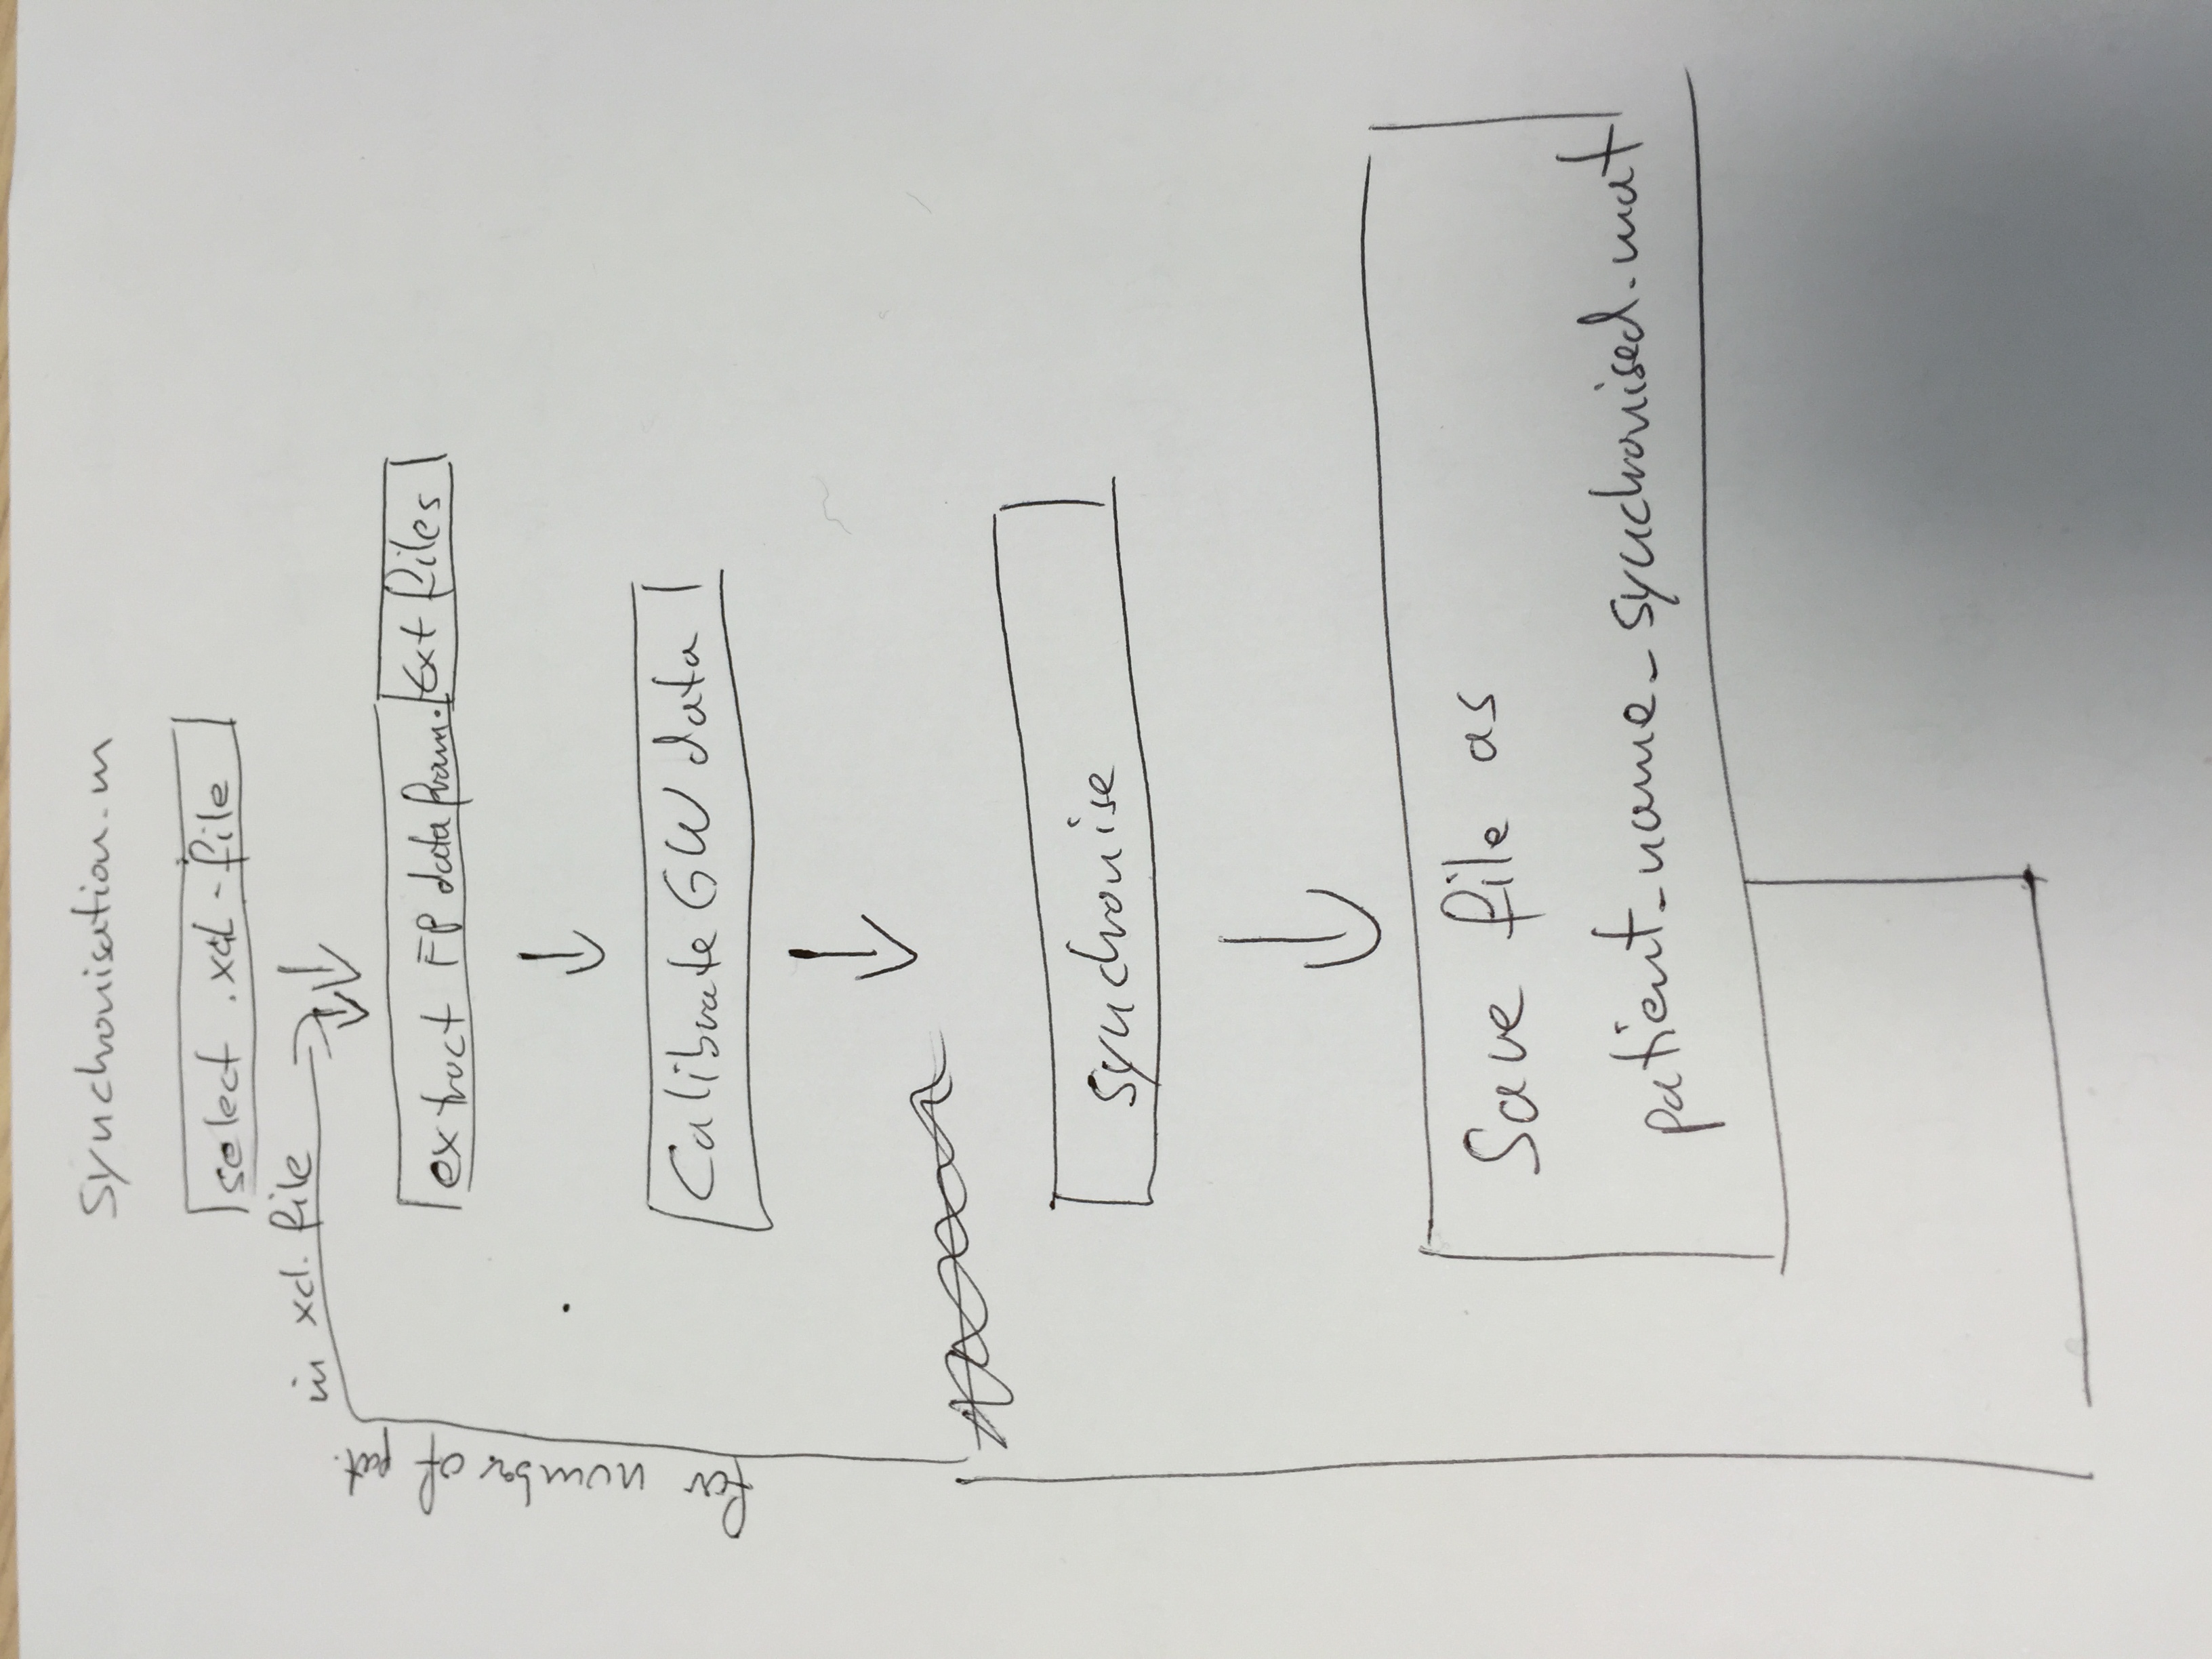 synchronisation.m
select .xcl-file
in xcl. file
for number of pat.
extract FP data from. txt files
Calibrate GW data
synchronise
Save file as
patient_name_synchronised.mat